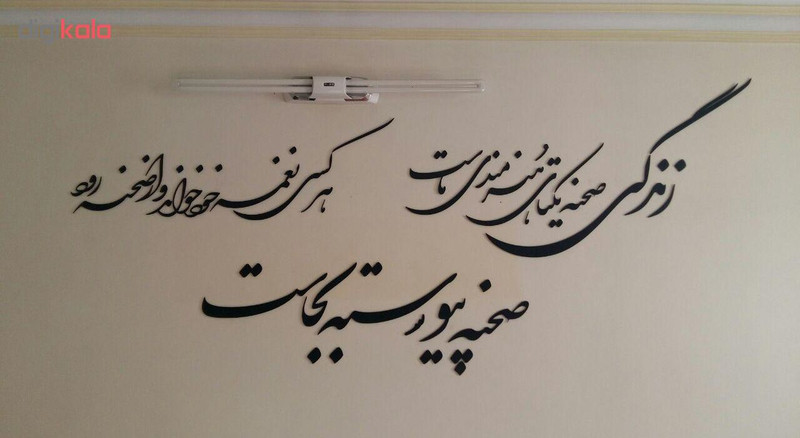 digikala
زندگی صحنه یکتای هنرمندی ماست
هر کسی نغمه خود خواند و از صحنه رود
صحنه پیوسته بجاست